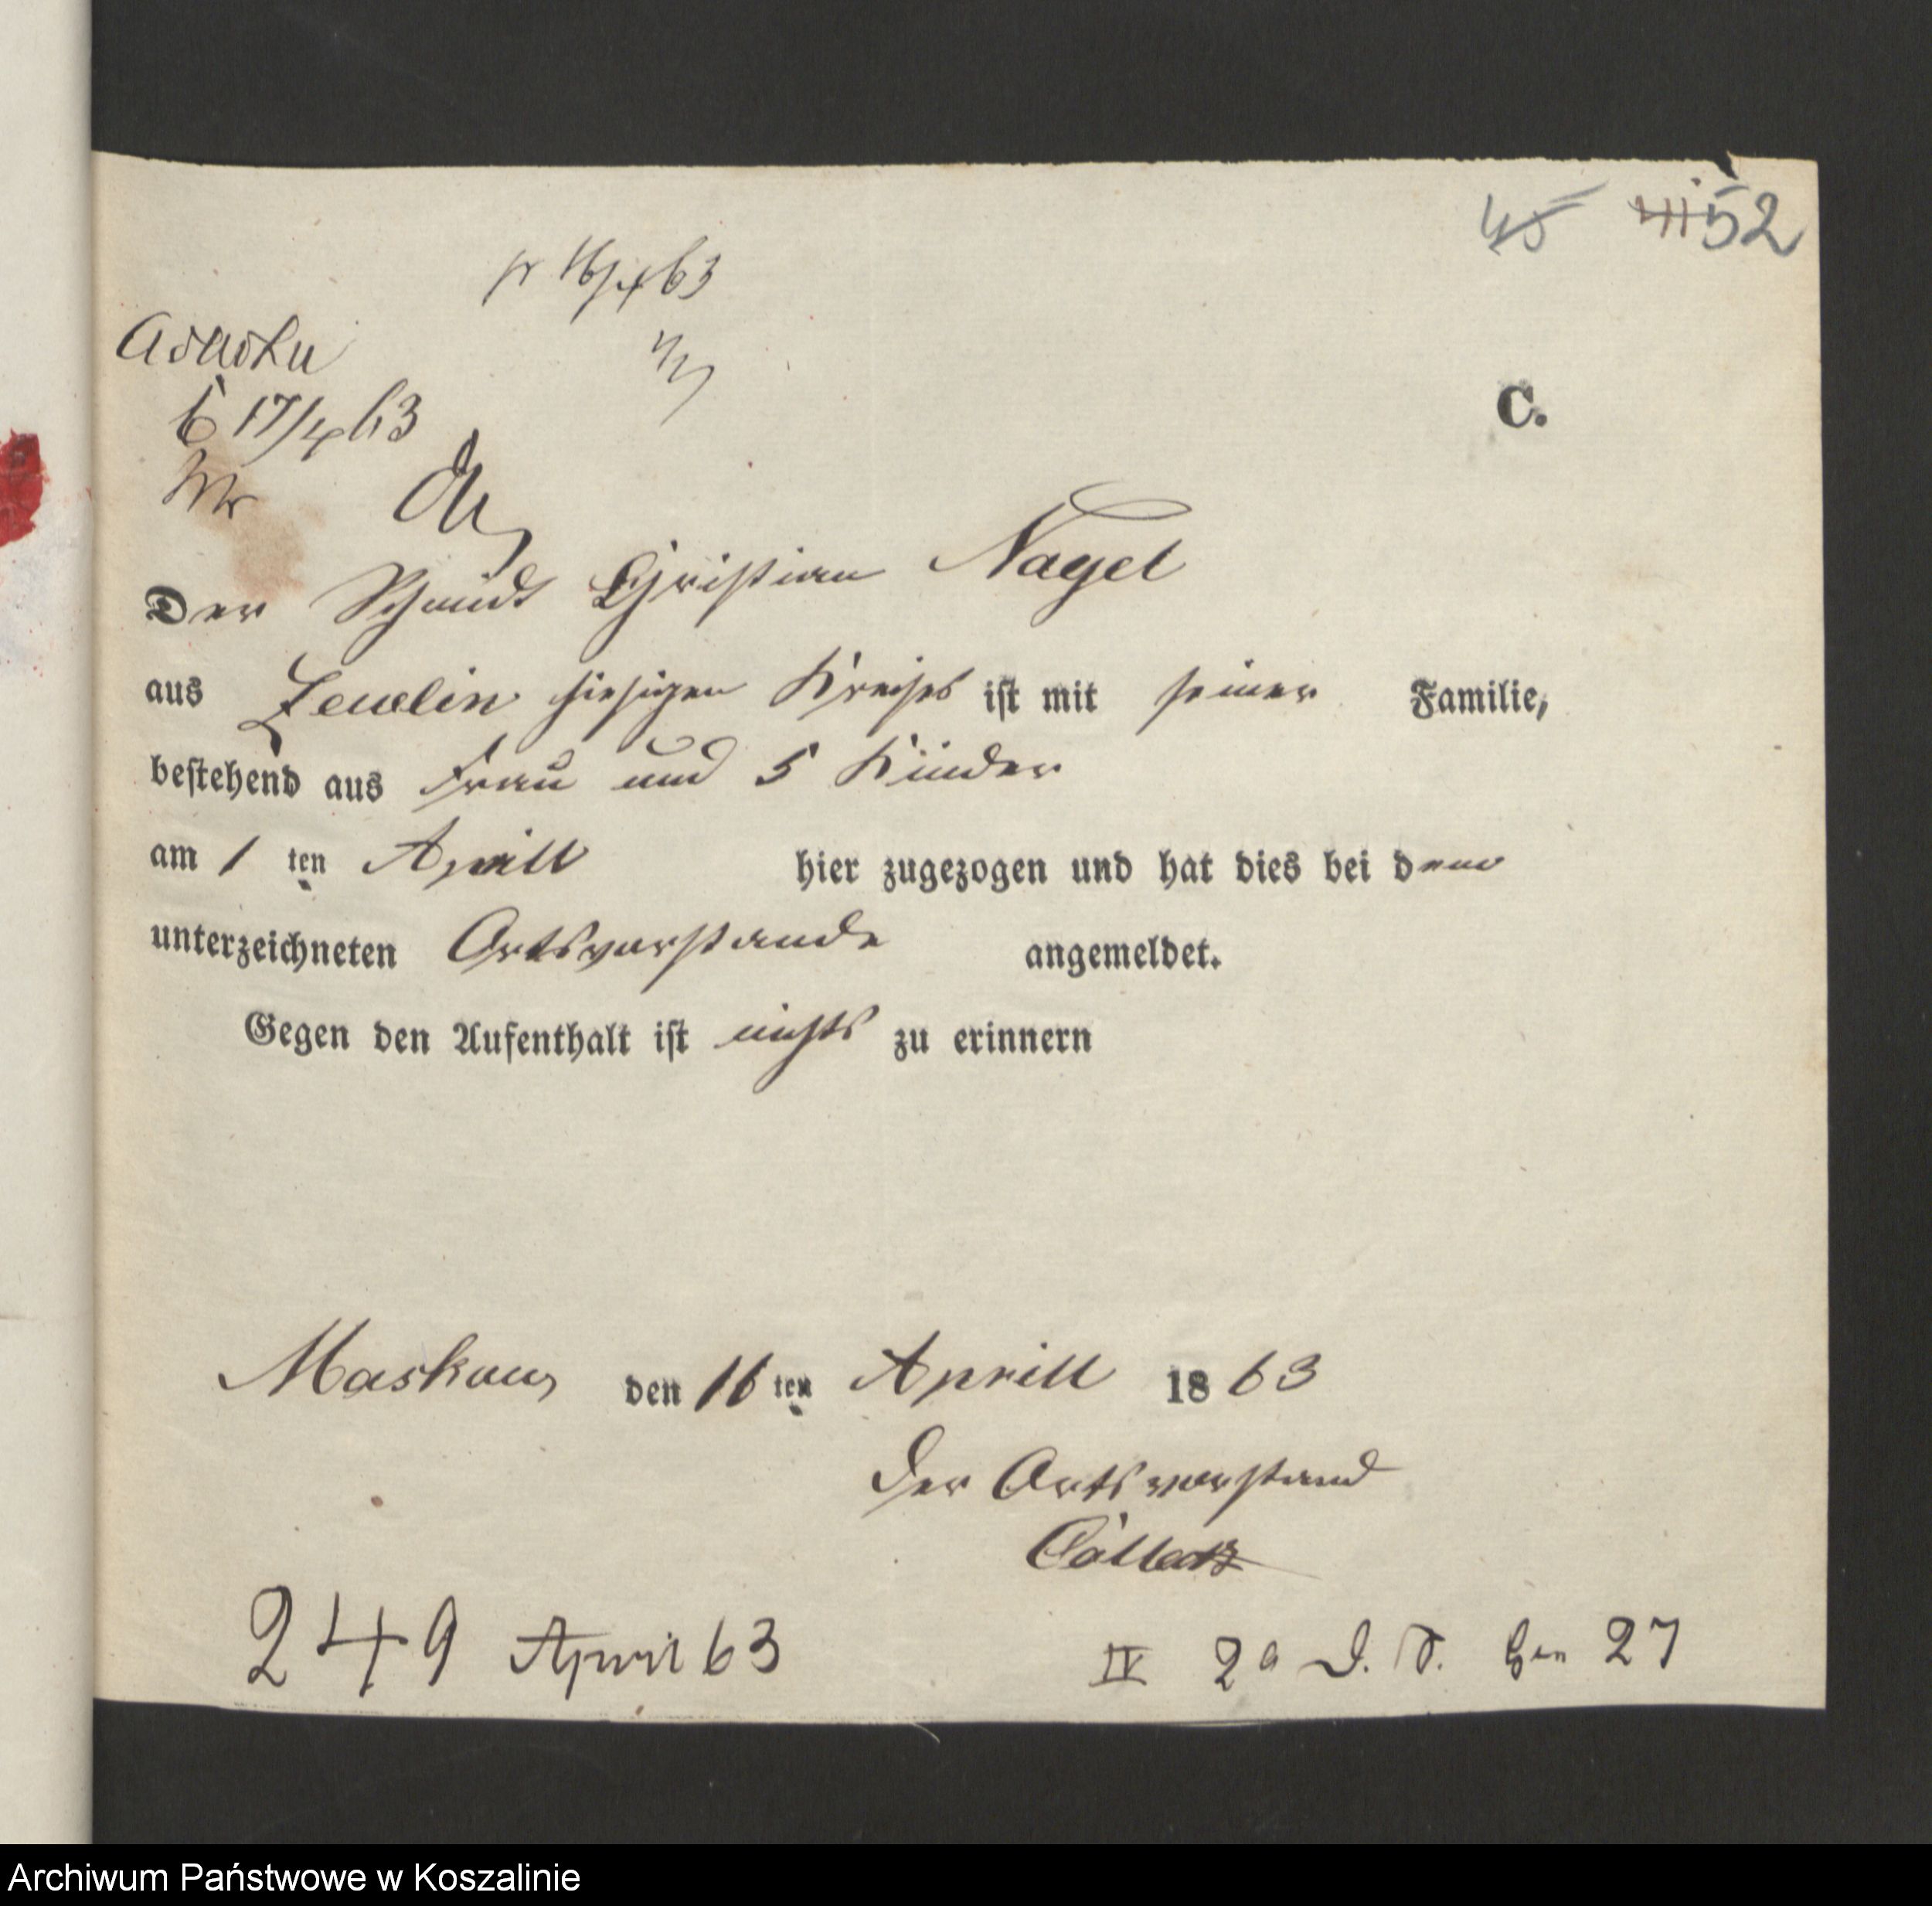 52
pr 16/4 63
Ad acta
17/4 63
C.
Der Schmidt Christian Nagel
aus Zewelin hiesigen Kreises ist mit seiner Familie,
bestehend aus Frau und 5 Kinder
am 1 ten Aprill hier zugezogen und hat dies bei dem
unterzeichneten Ortsvorstande angemeldet.
Gegen den Aufenthalt ist nichts zu erinnern
Maskow den 16 ten Aprill 1863
Der Ortsvorstand
249 April 63
IV 2a 27
Archiwum Państwowe w Koszalinie